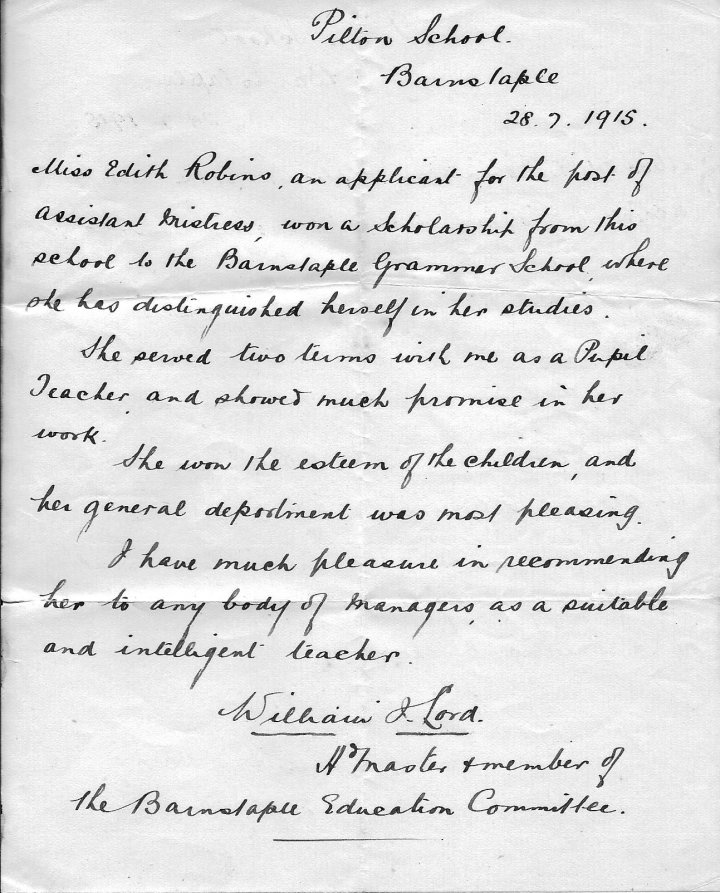 Pilton School.
Barnstaple
28.7.1915.
Miss Edith Robins, an applicant for the post of
Assistant Mistress, won a Scholarship from this
school to the Barnstaple Grammar School, where
she has distinguished herself in her studies.
She served two terms with me as a Pupil
Teacher, and showed much promise in her
work.
She won the esteem of the children, and
her general deportment was most pleasing.
I have much pleasure in recommending
her to any body of Managers, as a suitable
and intelligent teacher.
William J. Lord.
Hd Master & member of
the Barnstaple Education Committee.